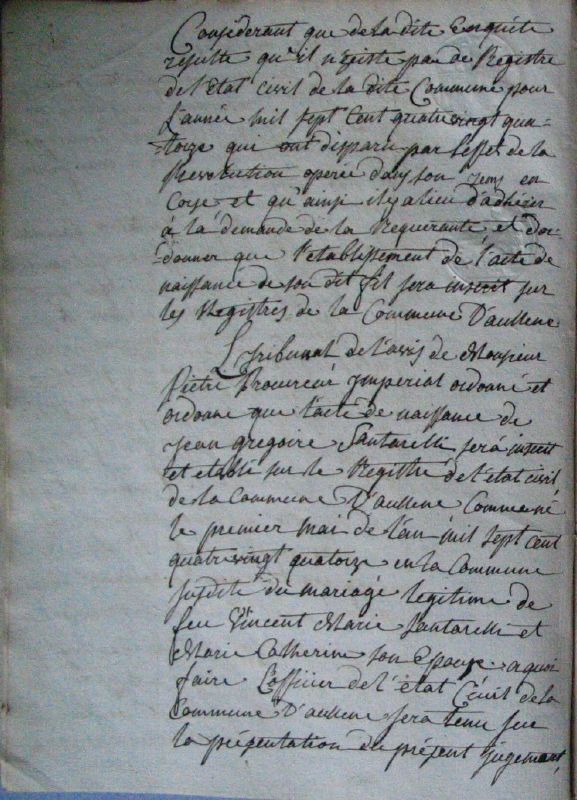 Considerant que de la dite Enquete
resulte qu'il n'existe pas de Registre
de l'Etat civil de la dite Commune pour
L'année mil sept Cent quatre vingt qua-
-torze qui ont disparu par l'effet de la
Revolution operée dans son tems en
Corse et qu'ainsi il y a lieu d'adhérer
à la demande de la Requerante et d'or-
-donner que l'etablissement de l'acte de
naissance de son dit fil sera inscrit sur
les Registres de la Commune D'aullene
Le Tribunal de l'avis de Monsieur
Pietri Procureur Imperial ordonné et
ordonne que l'acte de naissance de
Jean gregoire Santarelli sera inscrit
et etabli sur le Registre de l'etat civil
de la Commune D'aullene Commune
le premier mai de l'an mil sept cent
quatre vingt quatorze en la Commune
susdite du mariage legitime de
feu Vincent Marie Santarelli et
Marie Catherine son Epouse a quoi
faire L'officier de l'état Civil de la
Commune D'aullene sera tenu sur
la présentation du présent jugement,